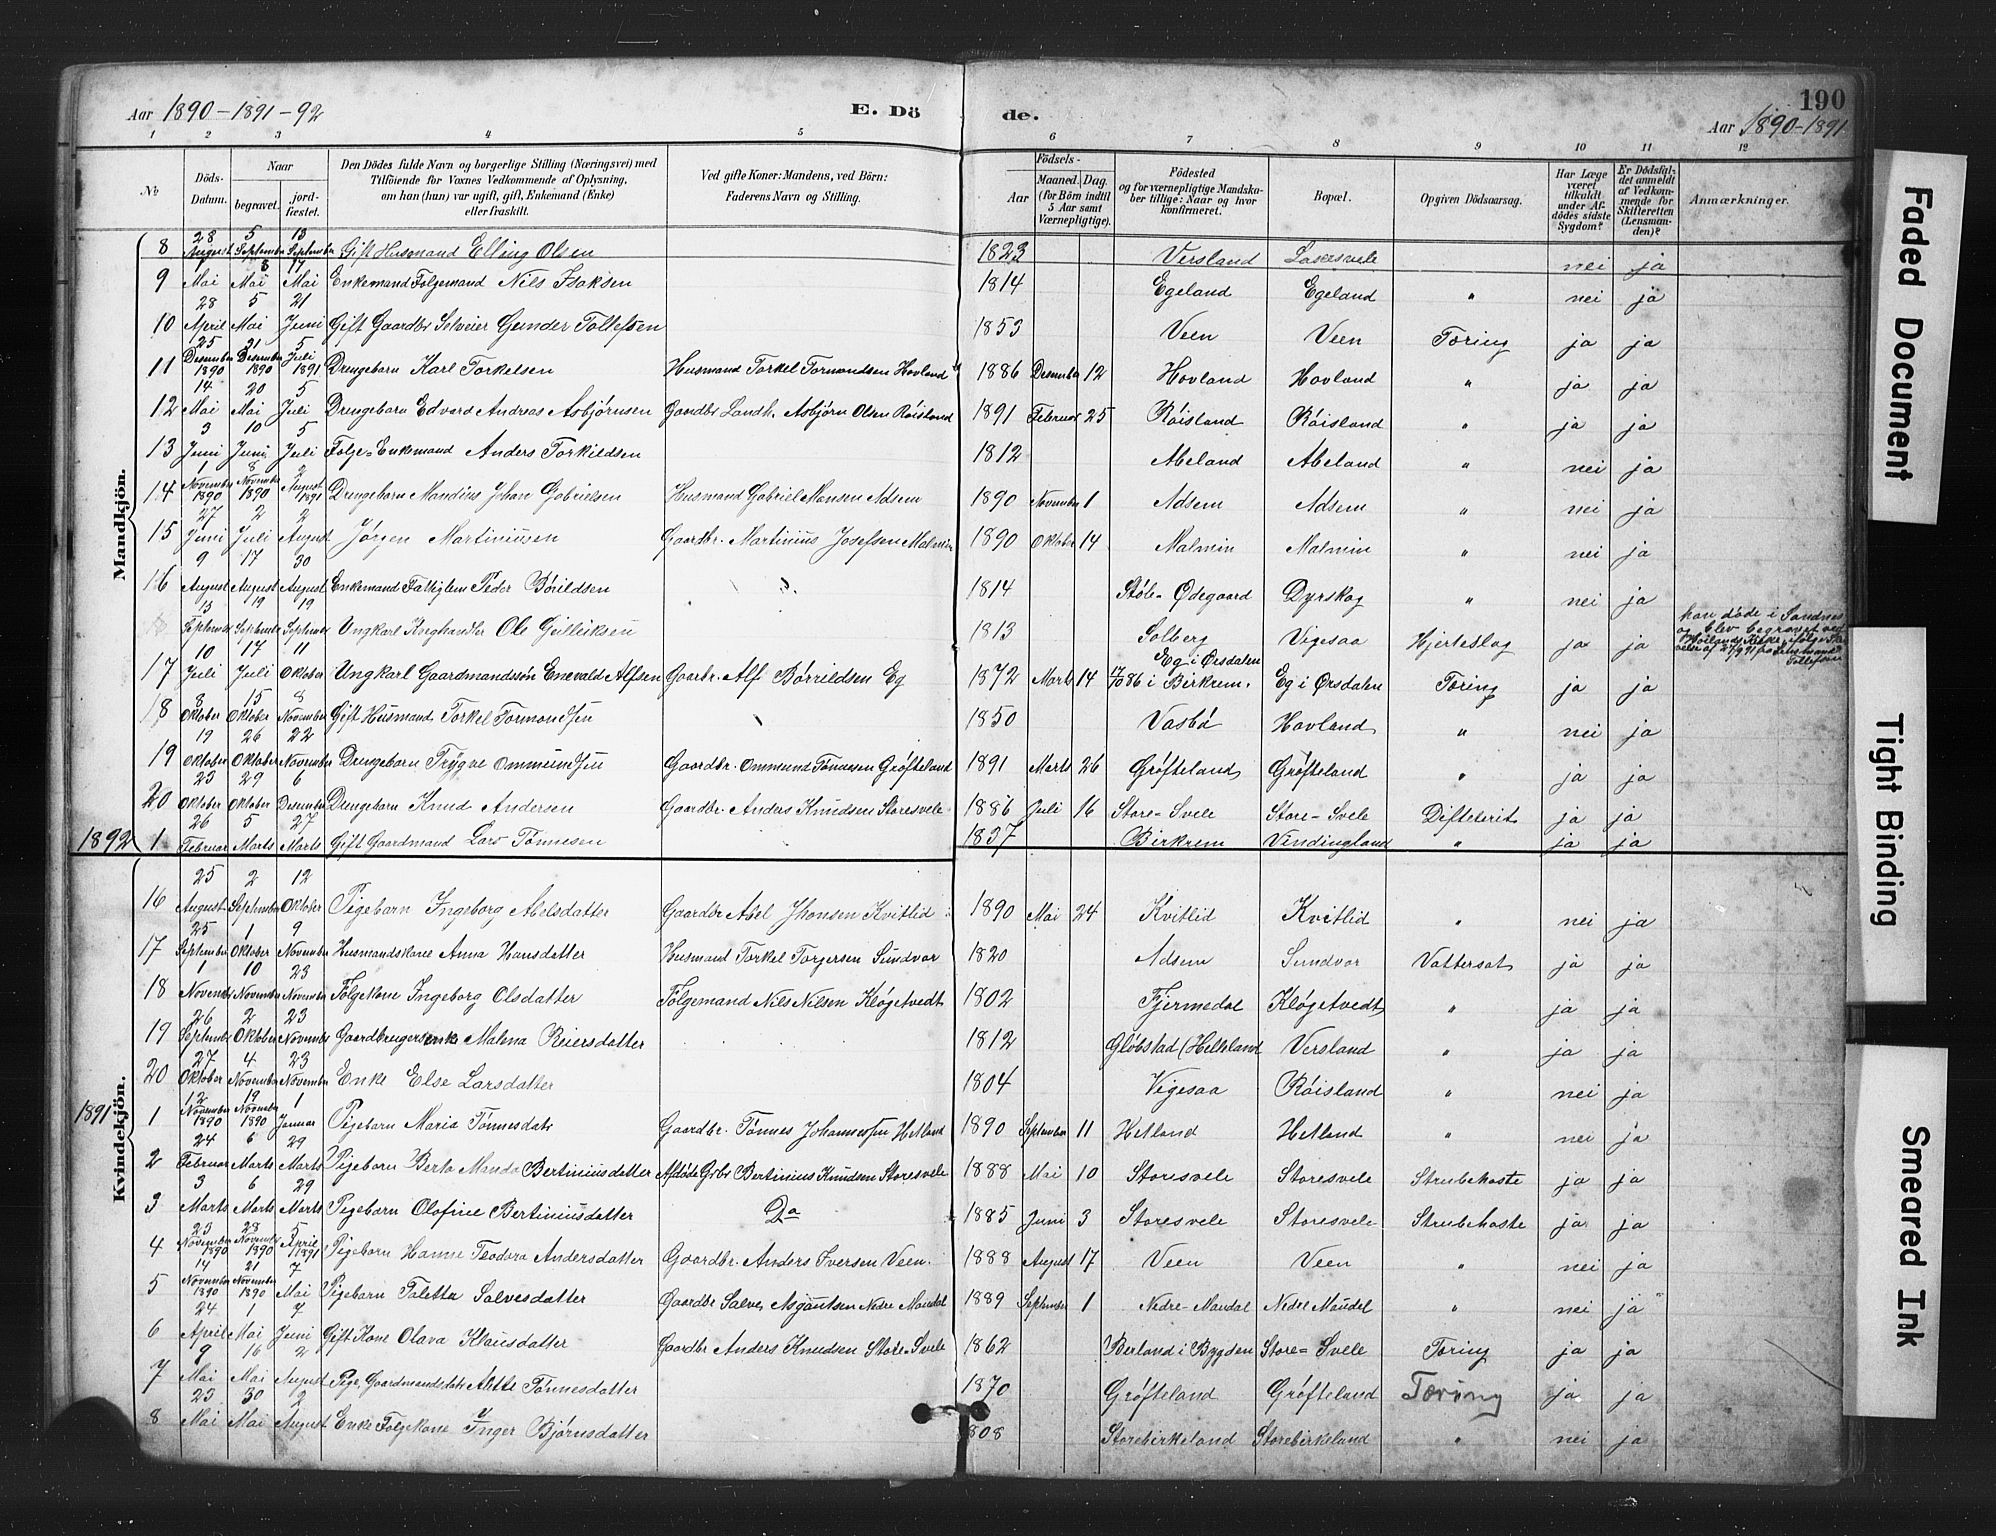 Aar 1890-1891-92
E. Dö
de.
190
Aar 1890-1891
1 2 3 4 5 6 7 8 9 10 11 12
№
Döds-Datum.
Naar
begravet.
jord-fæstet.
Den Dödes fulde Navn og borgerlige Stilling (Næringsvei) med
Tilföiende for Voxnes Vedkommende af Oplysning,
om han (hun) var ugift, gift, Enkemand (Enke)
eller fraskilt.
Ved gifte Koner: Mandens, ved Börn:
Faderens Navn og Stilling.
Födsels-
Aar
Maaned. Dag.
(for Börn indtil
5 Aar samt
Værnepligtige).
Födested
og for værnepligtige Mandska-
ber tillige: Naar og hvor
konfirmeret.
Bopæl.
Opgiven Dödsaarsag.
Har Læge
været
tilkaldt
under Af-
dödes sidste
Sygdom?
Er Dödsfal-
det anmeldt
af Vedkom-
mende for
Skifteretten
(Lensman-
den)?
Anmærkninger.
Mandkjön.
8 28 August 5 September 13 September Gift Husmand Elling Olsen 1823 Versland nei ja
9 1 Mai 8 Mai 17 Mai Enkemand Folgemand Nils Isaksen 1814 Egeland Egeland " nei ja
10 28 April 5 Mai 21 Juni Gift Gaardbr Selveier Gunder Tollefsen 1853 Veen Veen Tæring ja ja
11 25 Desember 1890 31 Desember 1890 5 Juli 1891 Drengebarn Karl Torkelsen Husmand Torkel Tormondsen Hovland 1886 Desember 12 Hovland Hovland " ja ja
12 14 Mai 20 Mai 5 Juli Drengebarn Edvard Andreas Asbjørnsen Gaardbr Landh. Asbjørn Olsen Røisland 1891 Februar 25 Røisland Røisland " ja ja
13 3 Juni 10 Juni 5 Juli Folge-Enkemand Anders Torkildsen 1812 Abeland Abeland " nei ja
14 1 November 1890 8 November 1890 2 August 1891 Drengebarn Mandius Johan Gabrielsen Husmand Gabriel Monsen Adsem 1890 November 1 Adsem Adsem " nei ja
15 27 Juni 2 Juli 2 August Jørgen Martiniusen Gaardbr. Martinius Josefsen Malmin 1890 Oktober 14 Malmin Malmin " nei ja
16 9 August 17 August 30 August Enkemand Fattiglem Peder Børildsen 1814 Støle-Ødegaard Dyrskog " nei ja
15 September 19 September 19 September Ungkarl Ole 1813 Solberg Vigesaa Hjerteslag ja ja
han døde i Sandnes
og blev begravet ved
17 10 Juli 17 Juli 11 Oktober Ungkarl Gaardmandssøn Enevald Alfsen Gaarbr. Alf Børrildsen Eg 1872 Marts 14 Eg i Ørsdalen 86 i Birkrem. Eg i Ørsdalen Tæring ja ja
18 8 Oktober 15 Oktober 8 November Gift Husmand Torkel Tormondsen 1850 Vasbø Hovland " nei ja
19 19 Oktober 26 Oktober 22 November Drengebarn Trygve Ommundsen Gaardbr. Ommund Tønnesen Grøfteland 1891 Marts 26 Grøfteland Grøfteland " ja ja
20 23 Oktober 29 Oktober 6 Desember Drengebarn Knud Andersen Gaardbr. Anders Knudsen Storesvele 1886 Juli 16 Store-Svele Store-Svele Difteterit ja ja
1892 1 26 Februar 5 Marts 27 Marts Gift Gaardmand Lars Tønnesen 1837 Birkrem Vindingland " ja ja
Kvindekjön.
16 25 August 2 September 12 Oktober Pigebarn Ingeborg Abelsdatter Gaardbr Abel Jhonsen Kvitlid 1890 Mai 24 Kvitlid Kvitlid " nei ja
17 25 September 1 Oktober 9 November Husmandskone Anna Hansdatter Husmand Torkel Torgersen Sundvor 1820 Adsem Sundvor Vattersot ja ja
18 1 November 10 November 23 November Følgekone Ingeborg Olsdatter Følgemand Nils Nilsen Kløgetvedt 1802 Fjermedal Kløgetvedt " ja ja
19 26 September 2 Oktober 23 November Gaardbrugerenke Malena Reiersdatter 1812 Gløbstad (Helleland Versland " ja ja
20 27 Oktober 4 November 23 November Enke Else Larsdatter 1804 Vigesaa Røisland " nei ja
1891 1 12 November 1890 19 November 1890 1 Januar Pigebarn Maria Tønnesdatr Gaardbr. Tønnes Johannessen Hetland 1890 September 11 Hetland Hetland " nei ja
2 24 Februar 6 Marts 29 Marts Pigebarn Berta Manda Bertiniusdatter Afdøde Gbr Bertinius Knudsen Storesvele 1888 Mai 10 Storesvele Storesvele Strubehoste ja ja
3 3 Marts 6 Marts 29 Marts Pigebarn Olofine Bertiniusdatter Do 1885 Juni 3 Storesvele Storesvele Strubehoste ja ja
4 23 November 1890 28 November 1890 5 April 1891 Pigebarn Hanne Teodora Andersdatter Gaardbr. Anders Iversen Veen. 1888 August 17 Veen Veen " nei ja
5 14 November 1890 21 November 1890 7 Mai Pigebarn Taletta Salvesdatter Gaardbr Salve Asgautsen Nedre Maudal 1889 September 1 Nedre-Maudal Nedre Maudal " nei ja
6 24 April 1 Mai 7 Juni Gift Kone Olava Klausdatter Gaardbr Anders Knudsen Store-Svele 1862 Berland i Bygden Store-Svele Tæring ja ja
7 9 Mai 16 Mai 2 August Pige, Gaardmandsdatr Alette Tønnesdatter 1870 Grøfteland Grøfteland Tæring ja ja
8 23 Mai 30 Mai 2 August Enke Følgekone Inger Bjørnsdatter 1808 Storebirkeland Storebirkeland " nei ja
Faded Document
Tight Binding
Smeared Ink